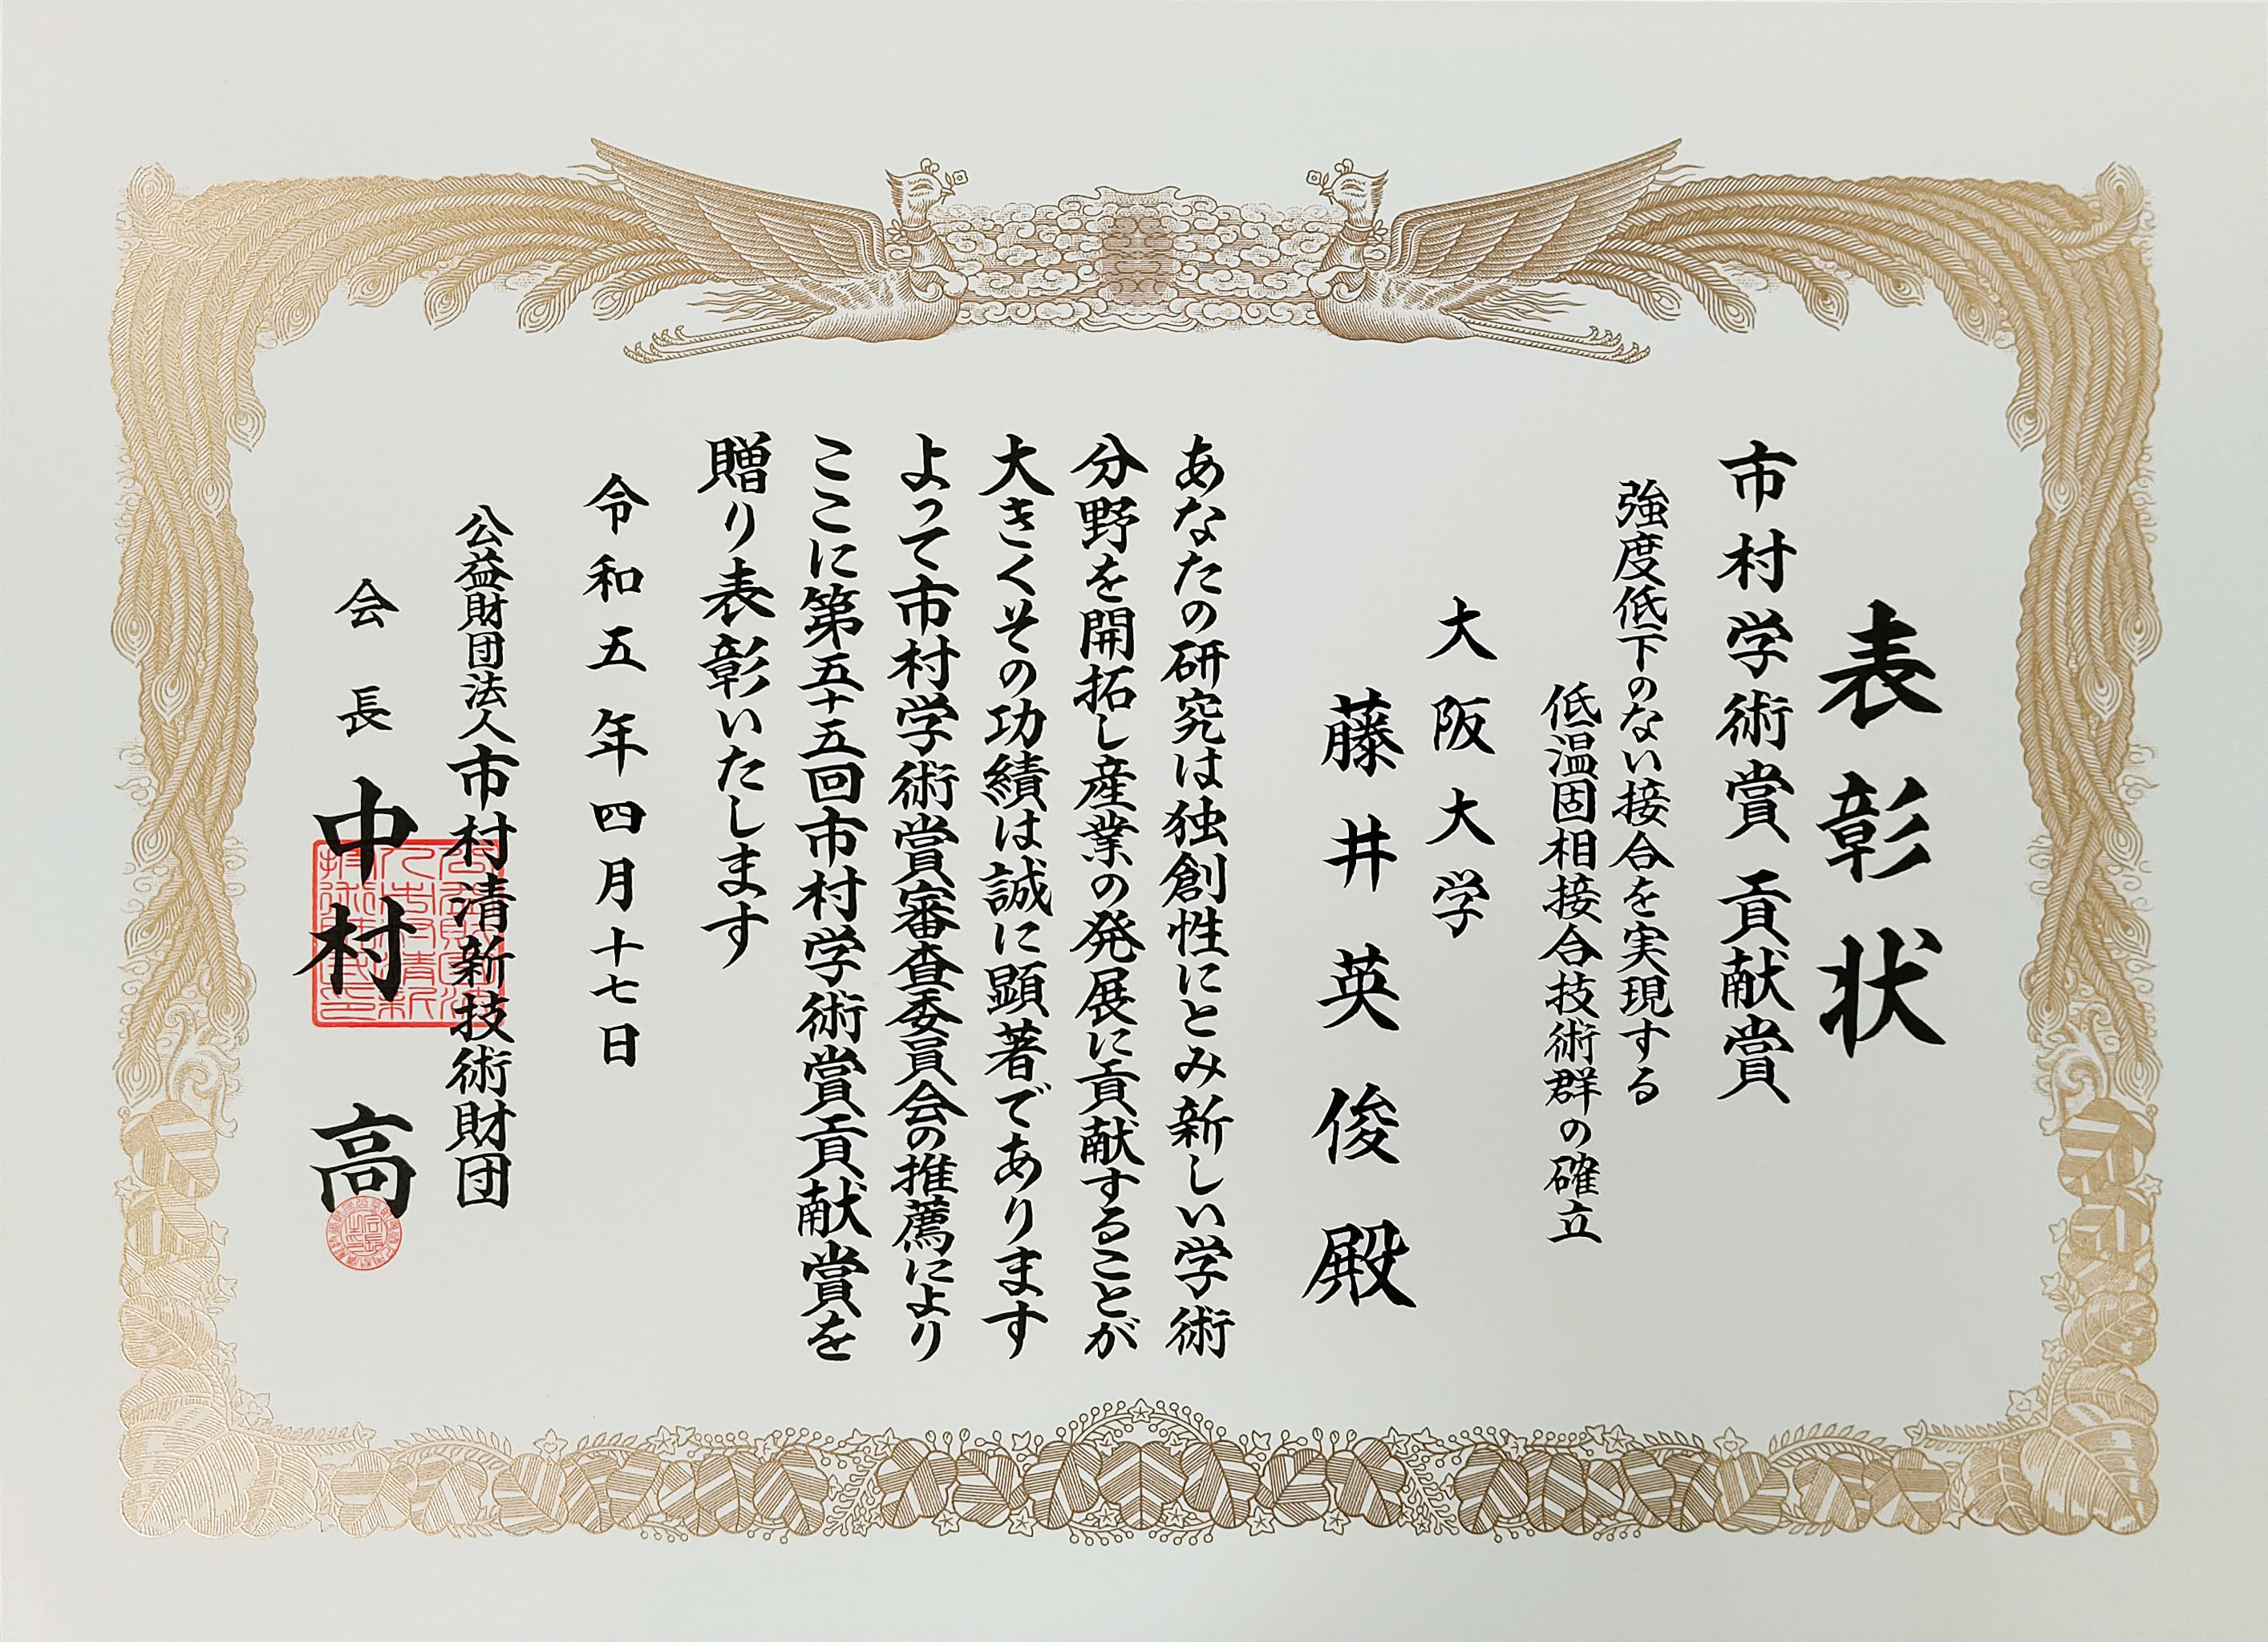 表彰状
市村学術賞 貢献賞
強度低下のない接合を実現する
低温固相接合技術群の確立
大阪大学
藤井英俊殿
あなたの研究は独創性にとみ新しい学術
分野を開拓し産業の発展に貢献することが
大きくその功績は誠に顕著であります
よって市村学術賞審査委員会の推薦により
ここに第五十五回市村学術賞貢献賞を
贈り表彰いたします
令和五年四月十七日
公益財団法人市村清新技術財団
会長 中村 高